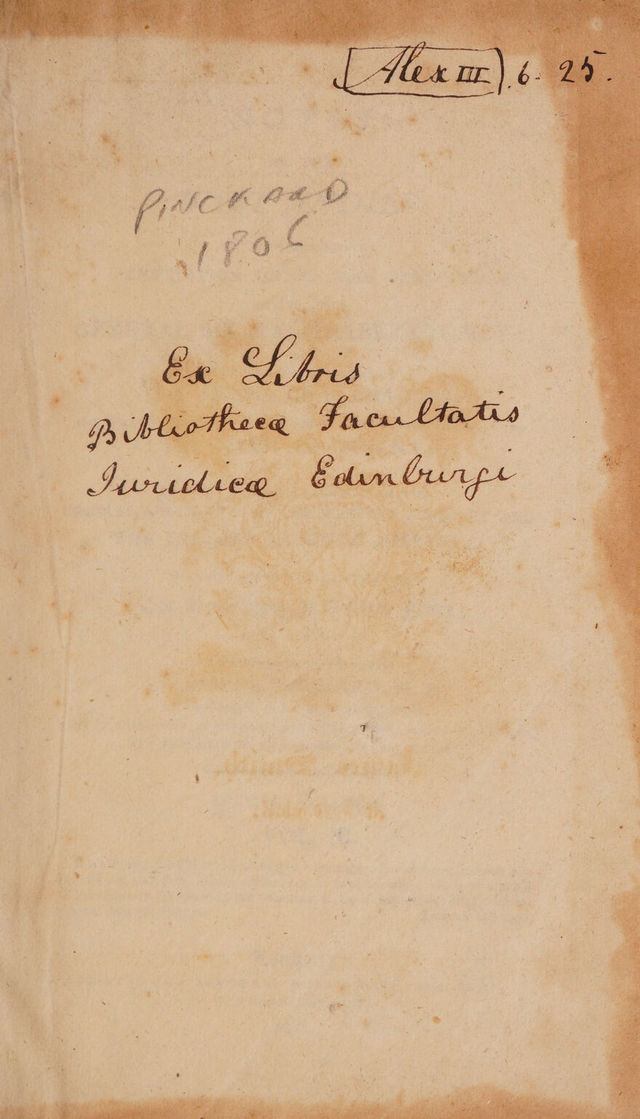 Alex III. 6. 25.
PINCKARD
1806
Ex Libris
Bibliothecæ Facultatis
Iuridicæ Edinburgi